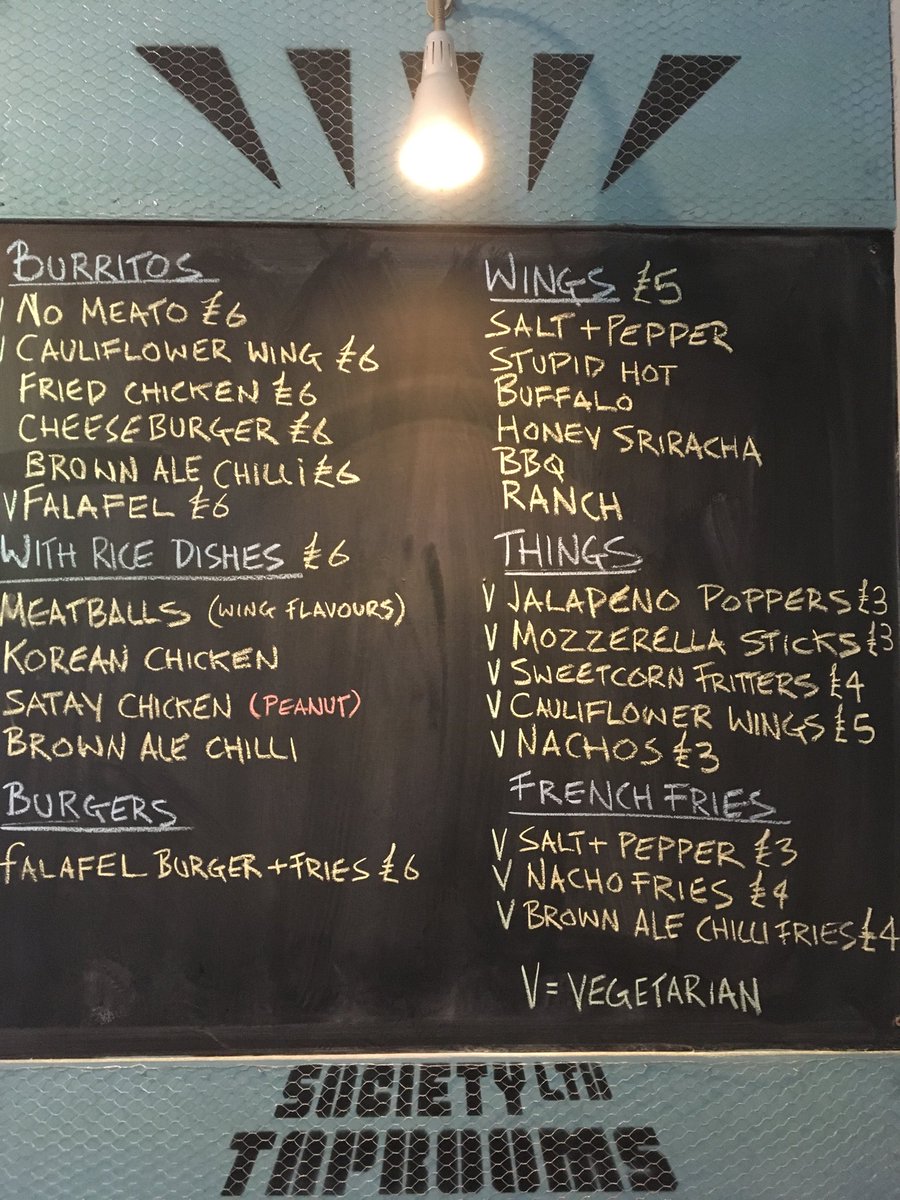 BURRITOS
V NO MEATO £6
V CAULIFLOWER WING £6
FRIED CHICKEN £6
CHEESEBURGER £6
BROWN ALE CHILLI £6
V FALAFEL £6
WITH RICE DISHES £6
MEATBALLS (WING FLAVOURS)
KOREAN CHICKEN
SATAY CHICKEN (PEANUT)
BROWN ALE CHILLI
BURGERS
FALAFEL BURGER + FRIES £6
WINGS £5
SALT + PEPPER
STUPID HOT
BUFFALO
HONEY SRIRACHA
BBQ
RANCH
THINGS
V JALAPENO POPPERS £3
V MOZZERELLA STICKS £3
V SWEETCORN FRITTERS £4
V CAULIFLOWER WINGS £5
V NACHOS £3
FRENCH FRIES
V SALT + PEPPER £3
V NACHO FRIES £4
V BROWN ALE CHILLI FRIES £4
V = VEGETARIAN
SOCIETY LTD
TAPROOMS